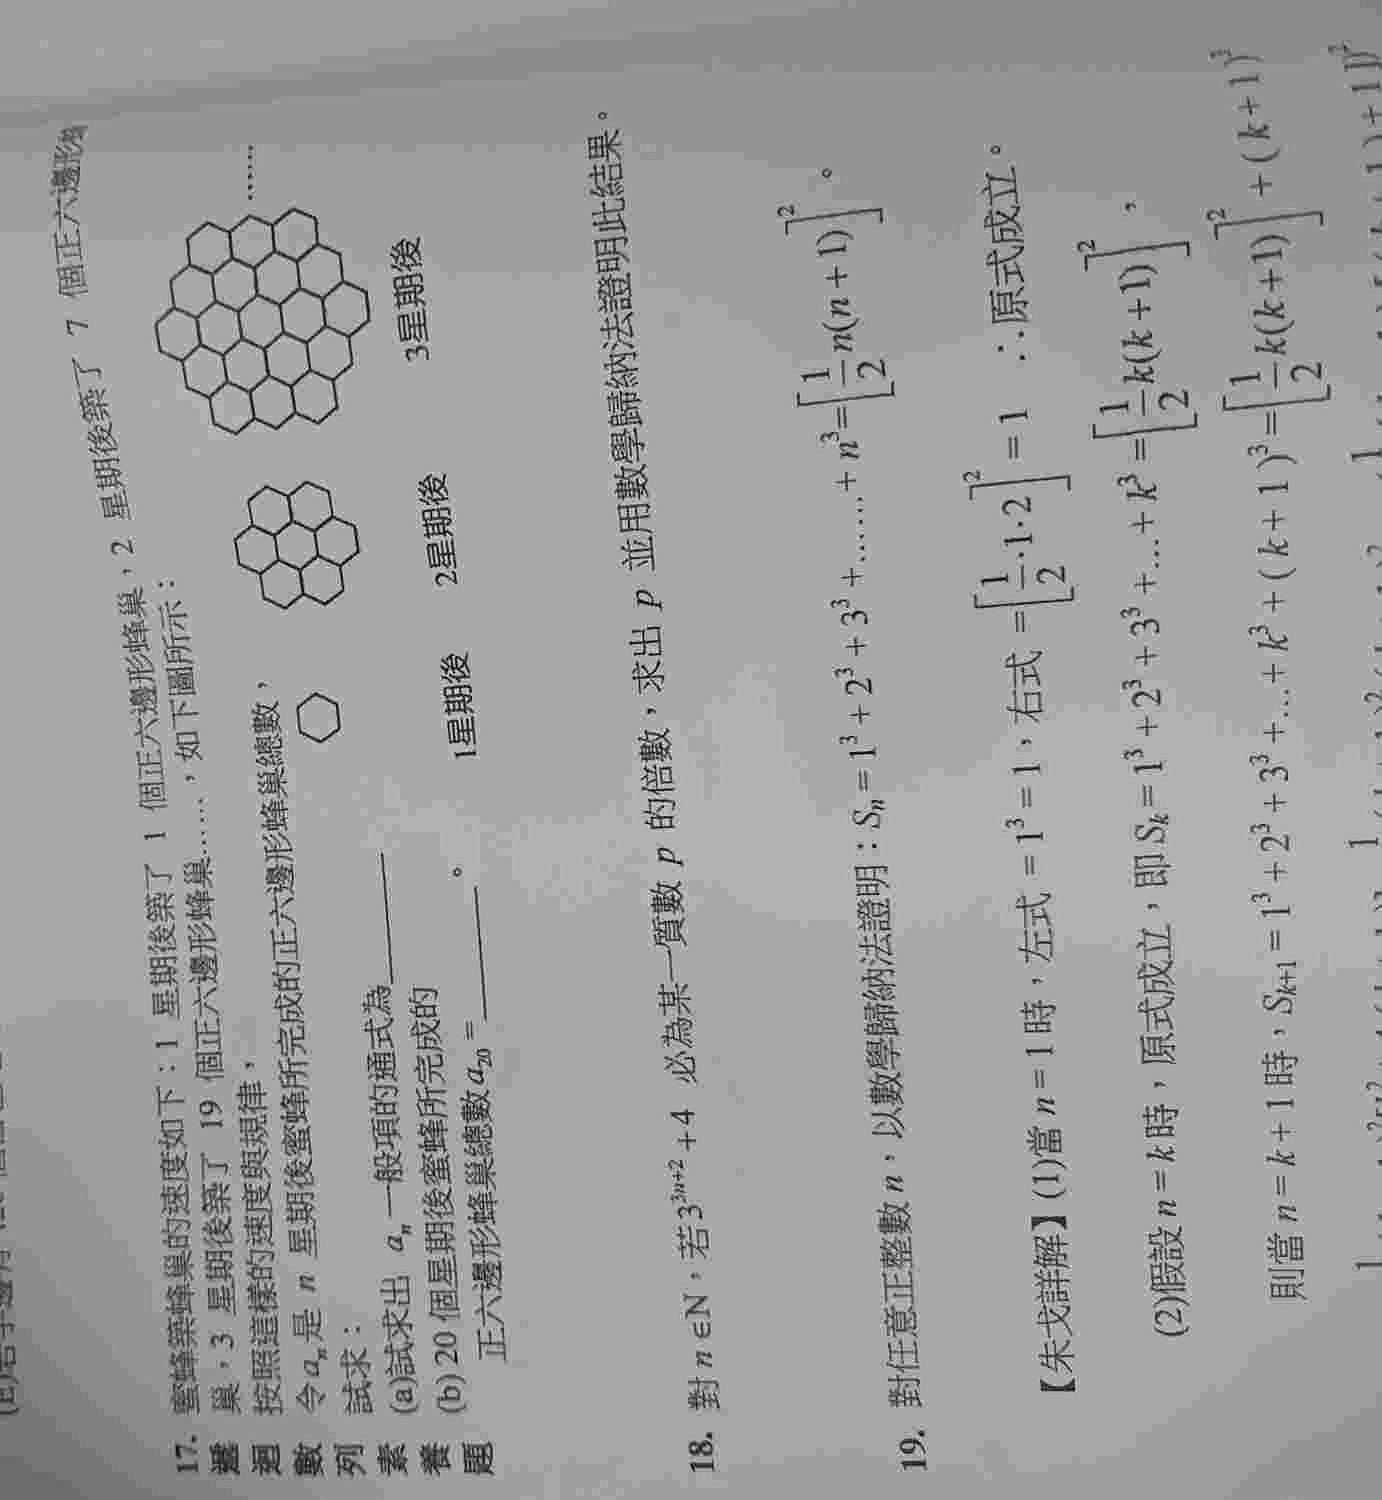 17. 蜜蜂築蜂巢的速度如下：1 星期後築了 1 個正六邊形蜂巢，2 星期後築了 7 個正六邊形蜂
巢，3 星期後築了 19 個正六邊形蜂巢……，如下圖所示：
按照這樣的速度與規律，
令 aₙ 是 n 星期後蜜蜂所完成的正六邊形蜂巢總數，
試求：
(a)試求出 aₙ 一般項的通式為________
(b) 20 個星期後蜜蜂所完成的
正六邊形蜂巢總數 a₂₀ = ________。
遞迴數列素養題
1星期後 2星期後 3星期後 ……
18. 對 n∈N，若 3³ⁿ⁺²+4 必為某一質數 p 的倍數，求出 p 並用數學歸納法證明此結果。
19. 對任意正整數 n，以數學歸納法證明：Sₙ = 1³ + 2³ + 3³ + …… + n³ = [1/2 n(n + 1)]²。
【朱戈詳解】(1)當 n = 1 時，左式 = 1³ = 1，右式 = [1/2·1·2]² = 1 ∴原式成立。
(2)假設 n = k 時，原式成立，即 Sₖ = 1³ + 2³ + 3³ + … + k³ = [1/2 k(k + 1)]²，
則當 n = k + 1 時，Sₖ₊₁ = 1³ + 2³ + 3³ + … + k³ + ( k + 1 )³ = [1/2 k(k+1)]² + ( k + 1 )³